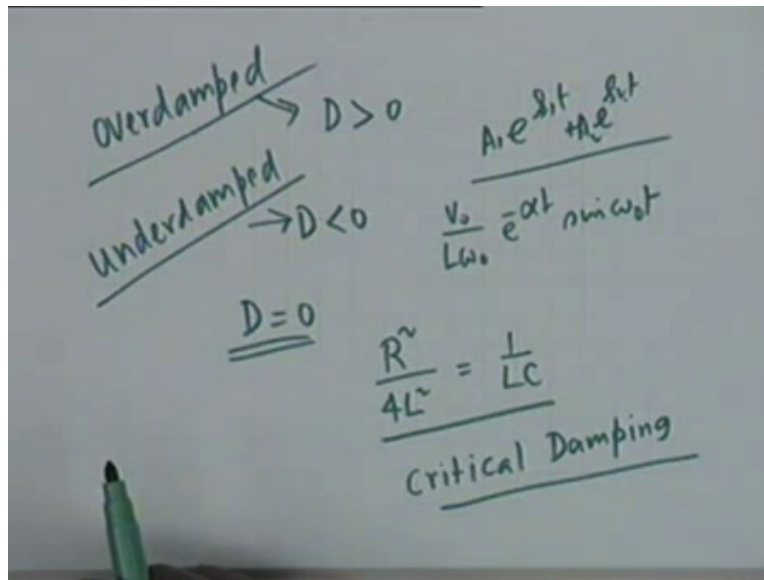 overdamped → D > 0
A₁ e^{s₁t} + A₂ e^{s₂t}
Underdamped → D < 0
V₀/Lω₀ e^{-αt} sin ω₀t
D = 0
R²/4L² = 1/LC
Critical Damping